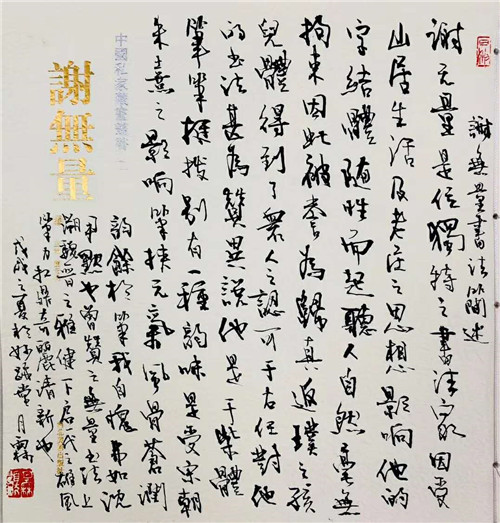 謝無量書法簡述
謝无量是位獨特之書法家因受
山居生活及老莊之思想影响他的
字結體随性而起聽人自然毫無
拘束因此被奉為歸真返璞之孩
兒體得到了衆人之認可于右任對他
的書法甚為贊異說他是干柴體
筆筆挺拔别有一種韵味是受宋朝
朱熹之影响筆挟元氣風骨蒼潤
韵餘於筆我自愧弗如沈
尹默也曾贊之無量書法上
溯魏晋之雅健下啟一代之雄風
筆力扛鼎奇麗清新也
戊戌之夏於堂月霖
中國私家藏
謝無量